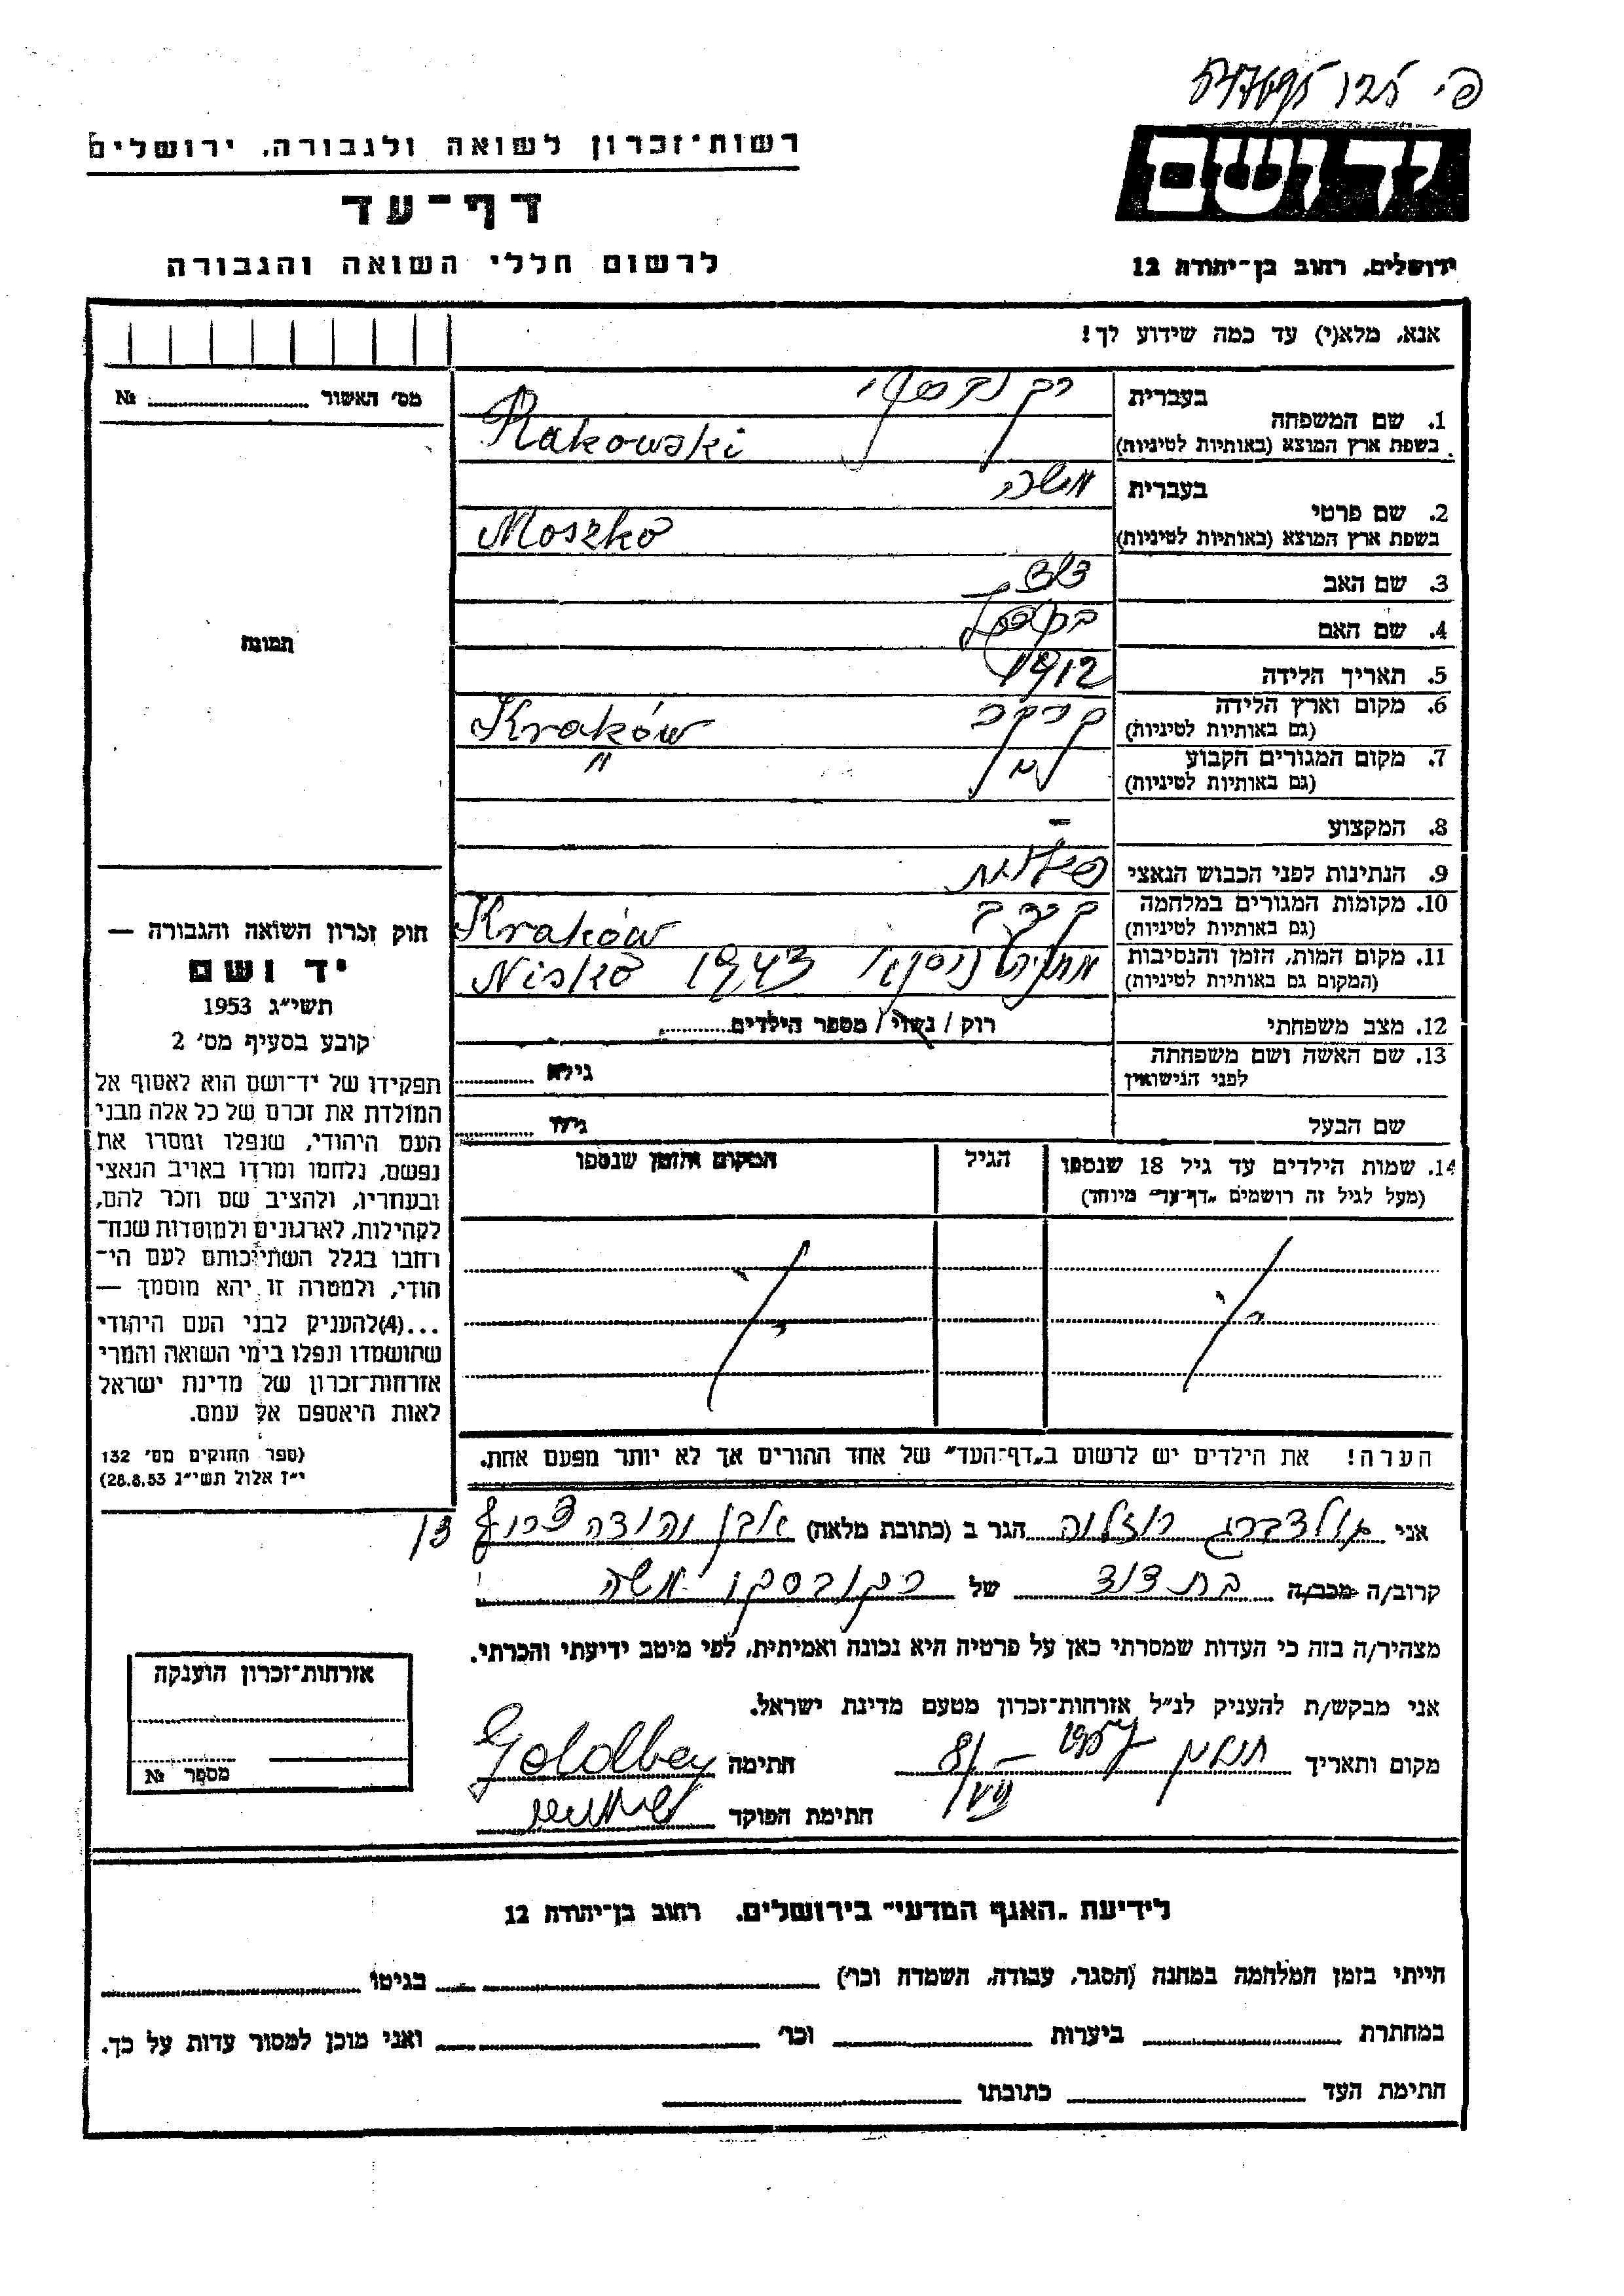 רשות־זכרון לשואה ולגבורה, ירושלים
דף־עד
לרשום חללי השואה והגבורה
יד ושם
ירושלים, רחוב בן־יהודה 12
אנא, מלא(י) עד כמה שידוע לך!
מס׳ האשור № 
בעברית רקובסקי
1. שם המשפחה
בשפת ארץ המוצא (באותיות לטיניות) Rakowski
בעברית משה
2. שם פרטי
בשפת ארץ המוצא (באותיות לטיניות) Moszko
3. שם האב דוד
4. שם האם
5. תאריך הלידה 1912
6. מקום וארץ הלידה קרקב Kraków
(גם באותיות לטיניות)
7. מקום המגורים הקבוע "
(גם באותיות לטיניות)
8. המקצוע –
9. הנתינות לפני הכבוש הנאצי פולנית
10. מקומות המגורים במלחמה קרקב Kraków
(גם באותיות לטיניות)
11. מקום המות, הזמן והנסיבות 1943 Nisko
(המקום גם באותיות לטיניות)
12. מצב משפחתי רוק / נשוי / מספר הילדים
13. שם האשה ושם משפחתה גילה
לפני הנישואין
שם הבעל גילו
14. שמות הילדים עד גיל 18 שנספו הגיל המקום והזמן שנספו
(מעל לגיל זה רושמים „דף־עד״ מיוחד)
הערה! את הילדים יש לרשום ב„דף־העד״ של אחד ההורים אך לא יותר מפעם אחת.
תמונה
חוק זכרון השואה והגבורה —
יד ושם
תשי״ג 1953
קובע בסעיף מס׳ 2
תפקידו של יד־ושם הוא לאסוף אל
המולדת את זכרם של כל אלה מבני
העם היהודי, שנפלו ומסרו את
נפשם, נלחמו ומרדו באויב הנאצי
ובעוזריו, ולהציב שם וזכר להם,
לקהילות, לארגונים ולמוסדות שנח־
רבו בגלל השתייכותם לעם הי־
הודי, ולמטרה זו יהא מוסמך —
...(4)להעניק לבני העם היהודי
שהושמדו ונפלו בימי השואה והמרי
אזרחות־זכרון של מדינת ישראל
לאות היאספם אל עמם.
(ספר החוקים מס׳ 132
י״ז אלול תשי״ג 28.8.53)
אני גולדברג רוזלה הגר ב (כתובת מלאה) אבן יהודה
קרוב/ה מכר/ה בת דוד של רקובסקי משה
מצהיר/ה בזה כי העדות שמסרתי כאן על פרטיה היא נכונה ואמיתית, לפי מיטב ידיעתי והכרתי.
אני מבקש/ת להעניק לנ״ל אזרחות־זכרון מטעם מדינת ישראל.
מקום ותאריך 8/VII חתימה Goldberg
חתימת הפוקד
אזרחות־זכרון הוענקה
מספר №
לידיעת „האגף המדעי״ בירושלים, רחוב בן־יהודה 12
הייתי בזמן המלחמה במחנה (הסגר, עבודה, השמדה וכו׳) בגיטו
במחתרת ביערות וכו׳ ואני מוכן למסור עדות על כך.
חתימת העד כתובתו